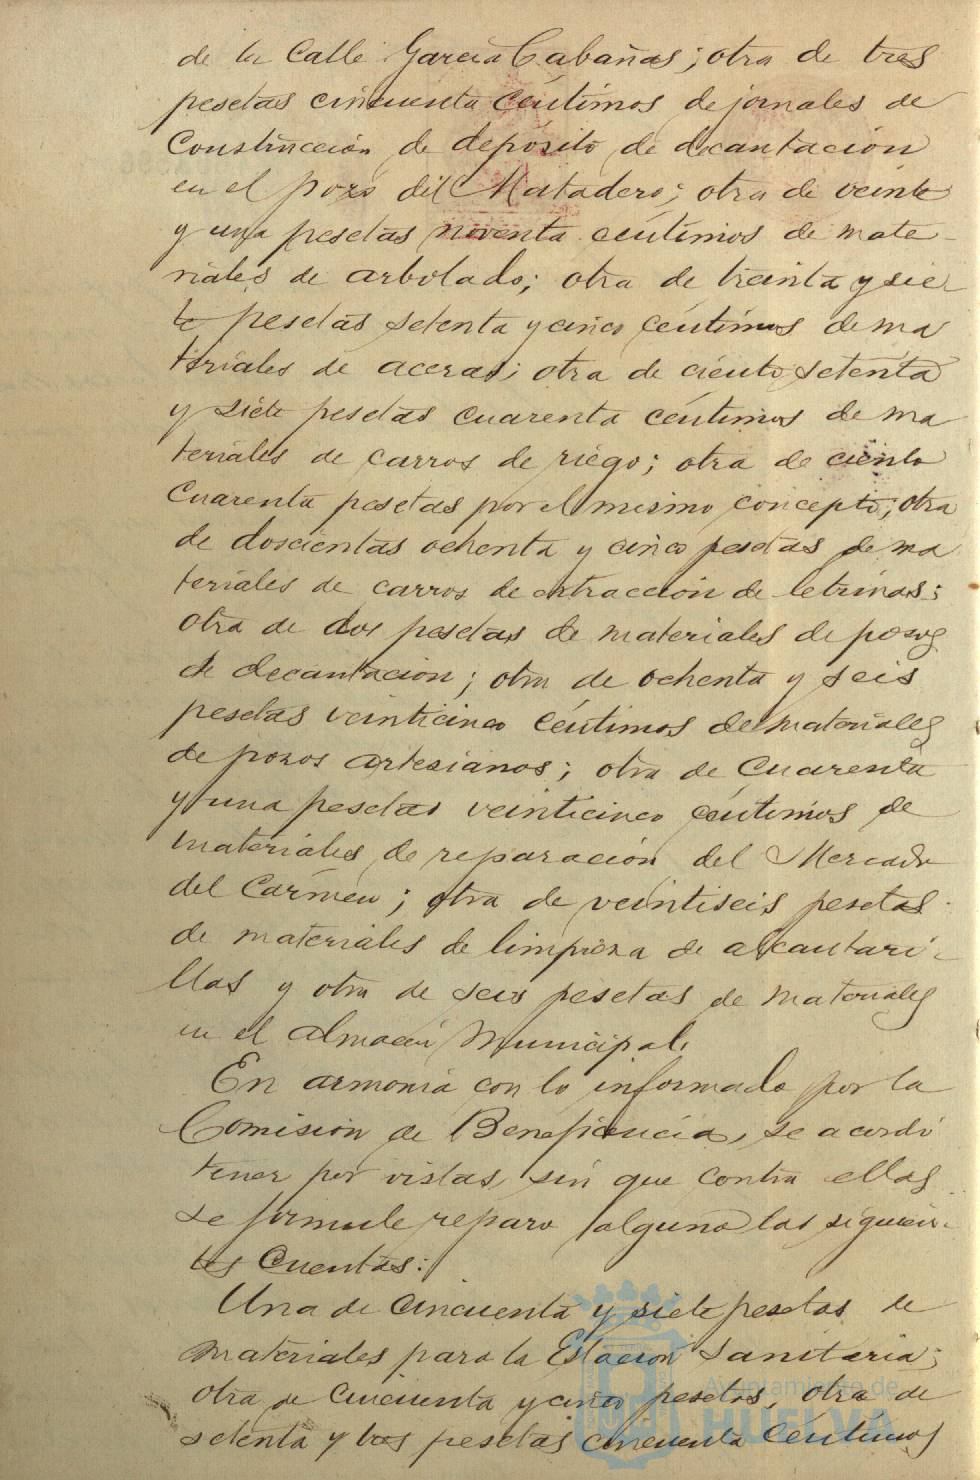 de la Calle Garcia Cabañas; otra de tres
pesetas cincuenta céntimos de jornales de
Construcción de depósito de decantación
en el pozo del Matadero; otra de veinte
y una pesetas noventa céntimos de mate-
riales de arbolado; otra de treinta y sie-
te pesetas setenta y cinco céntimos de ma
teriales de aceras; otra de ciento setenta
y siete pesetas cuarenta céntimos de ma
teriales de carros de riego; otra de ciento
cuarenta pesetas por el mismo concepto; otra
de doscientas ochenta y cinco pesetas de ma
teriales de carros de extracción de letrinas;
otra de dos pesetas de materiales de pozos
de decantación; otra de ochenta y seis
pesetas veinticinco céntimos de materiales
de pozos artesianos; otra de cuarenta
y una pesetas veinticinco céntimos de
materiales de reparación del Mercado
del Carmen; otra de veintiseis pesetas
de materiales de limpieza de alcantari-
llas y otra de seis pesetas de materiales
en el almacén Municipal.
En armonía con lo informado por la
Comisión de Beneficencia, se acordó
tener por vistas, sin que contra ellas
se formule reparo alguno las siguien-
tes Cuentas:
Una de cincuenta y siete pesetas de
materiales para la Estación Sanitaria;
otra de cincuenta y cinco pesetas, otra de
setenta y dos pesetas cincuenta céntimos
Ayuntamiento de
HUELVA